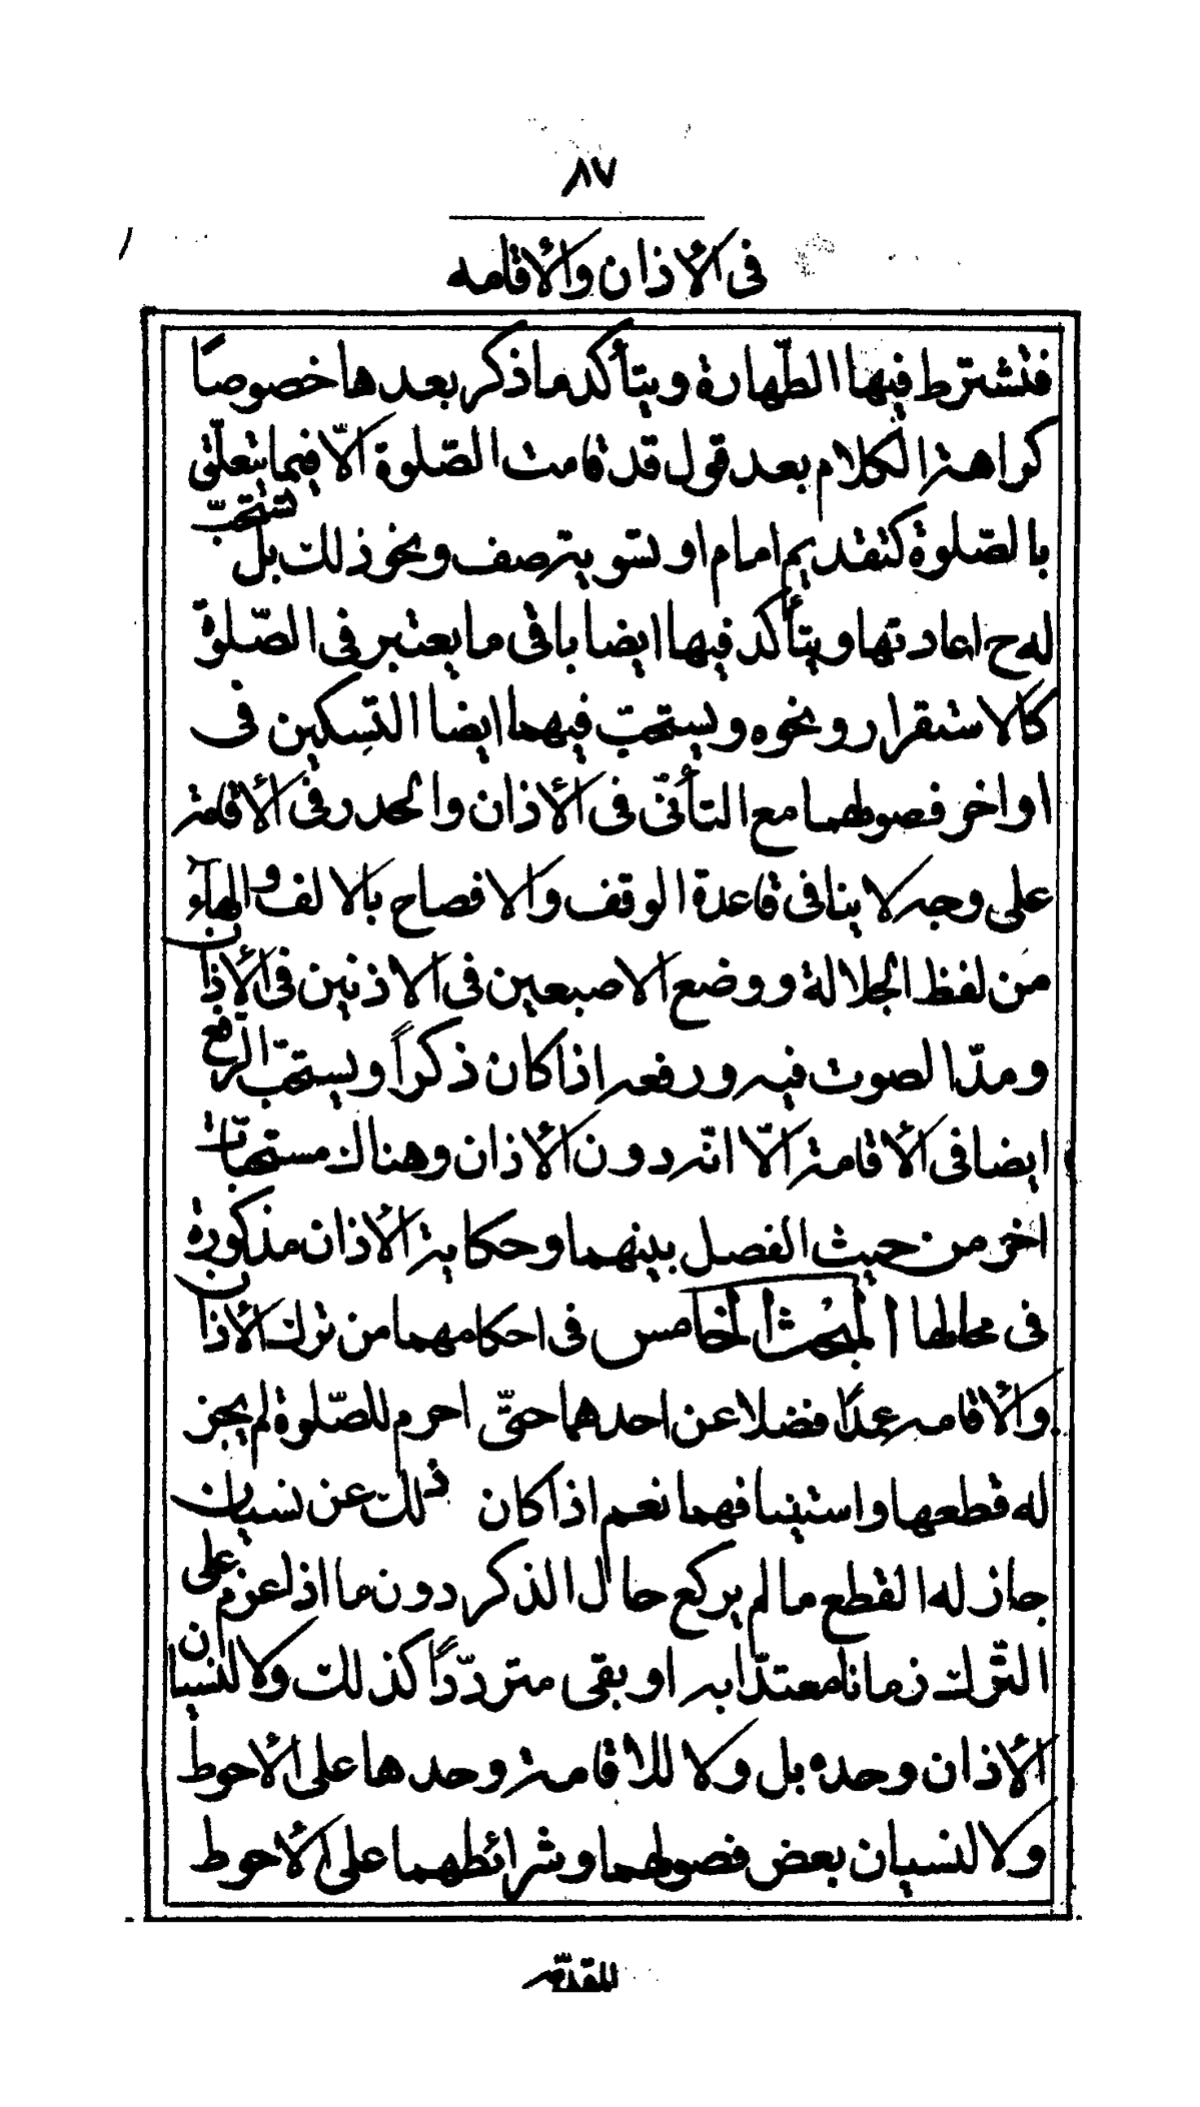 ٨٧
فى الأذان والأقامه
فتشترط فيها الطّهارة ويتأكد ما ذكر بعدها خصوصًا
كراهة الكلام بعد قول قد قامت الصّلوة الّا فيما يتعلّق
بالصّلوة كتقديم امام او تسوية صف ونحو ذلك بل تستحبّ
له ح اعادتها ويتأكد فيها ايضا باقى ما يعتبر فى الصّلوة
كالاستقرار ونحوه ويستحبّ فيهما ايضا التسكين فى
اواخر فصولهما مع التأنّى فى الأذان والحدر فى الأقامة
على وجه لا ينافى قاعدة الوقف والافصاح بالالف والهآء
من لفظ الجلالة ووضع الاصبعين فى الاذنين فى الأذان
ومدّ الصوت فيه ورفعه اذا كان ذكراً ويستحبّ الرّفع
ايضا فى الأقامة الّا انّه دون الأذان وهناك مستحبّات
اخر من حيث الفصل بينهما وحكاية الأذان مذكورة
فى محالها المبحث الخامس فى احكامهما من ترك الأذان
والأقامه عمدًا فضلا عن احدهما حتّى احرم للصّلوة لم يجز
له قطعها واستينافهما نعم اذا كان ذلك عن نسيان
جاز له القطع ما لم يركع حال الذكر دون ما اذا عزم على
التّرك زمانا معتدّا به او بقى متردّدًا كذلك ولا لنسيان
الأذان وحده بل ولا للاقامة وحدها على الأحوط
ولا لنسيان بعض فصولهما وشرائطهما على الأحوط
للمقدّمه